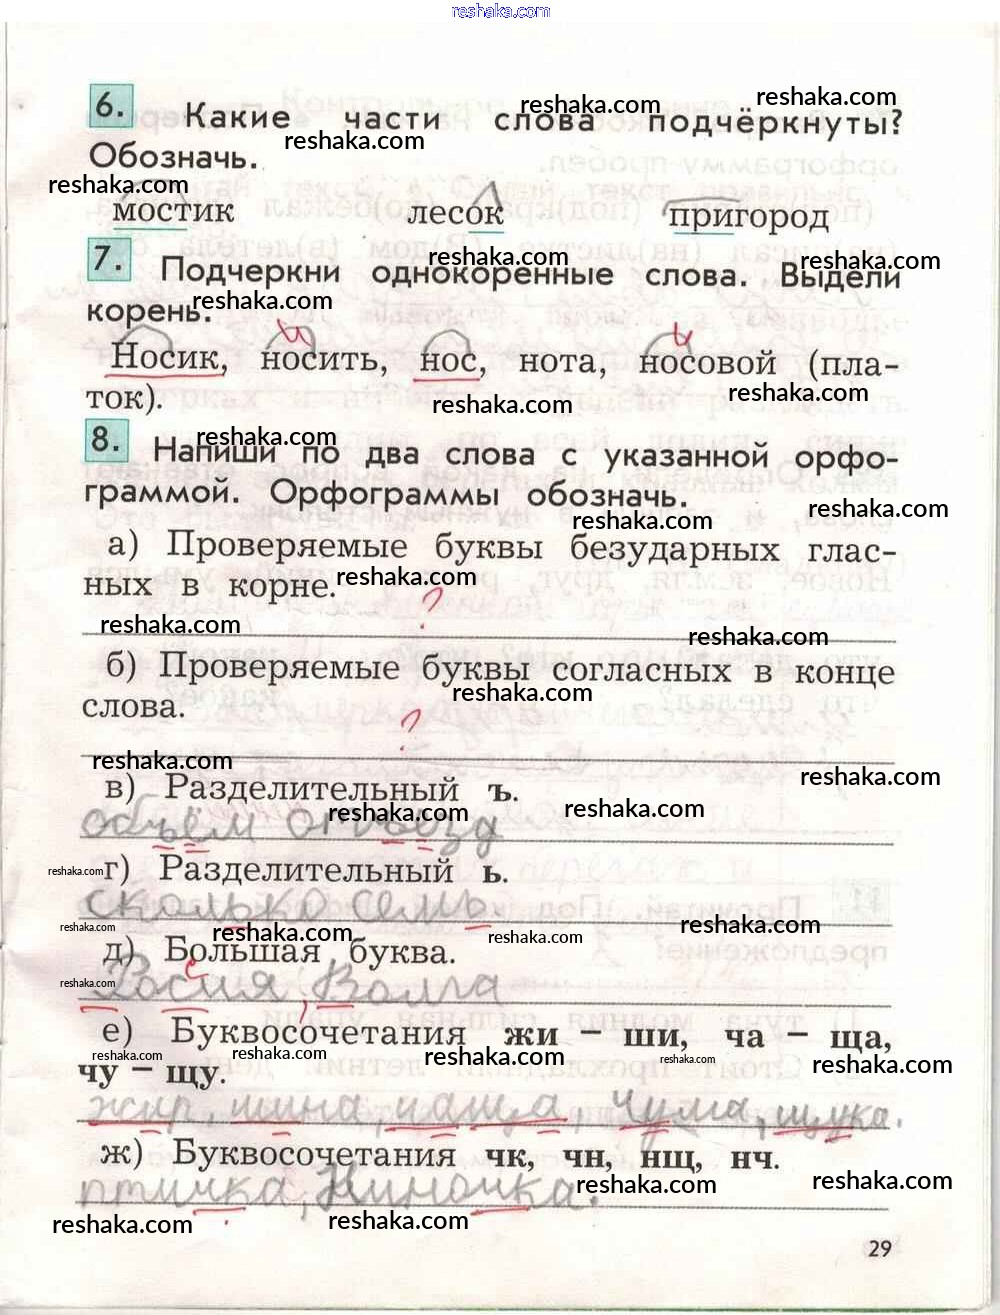 reshaka.com
6. Какие части слова подчёркнуты?
reshaka.com reshaka.com reshaka.com
Обозначь.
reshaka.com
мостик лесок пригород
reshaka.com reshaka.com
7. Подчеркни однокоренные слова. Выдели
reshaka.com
корень.
и и
Носик, носить, нос, нота, носовой (пла-
reshaka.com
ток). reshaka.com
reshaka.com
8. Напиши по два слова с указанной орфо-
граммой. Орфограммы обозначь.
reshaka.com reshaka.com
а) Проверяемые буквы безударных глас-
ных в корне. reshaka.com
?
reshaka.com reshaka.com
б) Проверяемые буквы согласных в конце
reshaka.com
слова.
?
reshaka.com
reshaka.com
в) Разделительный ъ.
reshaka.com reshaka.com
объём отъезд
reshaka.com г) Разделительный ь.
сколько семь.
reshaka.com reshaka.com reshaka.com reshaka.com
д) Большая буква.
reshaka.com
с
Росия, Волга
е) Буквосочетания жи – ши, ча – ща,
reshaka.com reshaka.com reshaka.com reshaka.com reshaka.com
чу – щу.
жир, шина, чаща, чума, щука.
ж) Буквосочетания чк, чн, нщ, нч.
reshaka.com reshaka.com
птичка, Ниночка.
reshaka.com reshaka.com
29